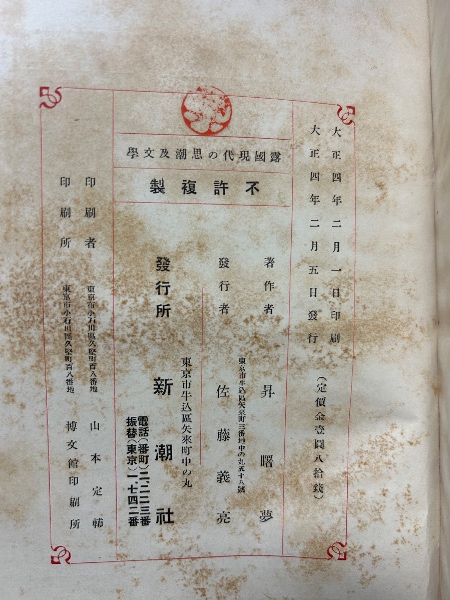 大正四年二月一日印刷
大正四年二月五日發行
（定價金壹圓八拾錢）
露國現代の思潮及文學
不許複製
著作者　昇曙夢
東京市牛込區矢來町三番地中の丸五十八號
發行者　佐藤義亮
東京市牛込區矢來町中の丸
發行所　新潮社
電話（番町）二、一二三番
振替（東京）一、七四二番
東京市小石川區久堅町百八番地
印刷者　山本定輔
東京市小石川區久堅町百八番地
印刷所　博文館印刷所